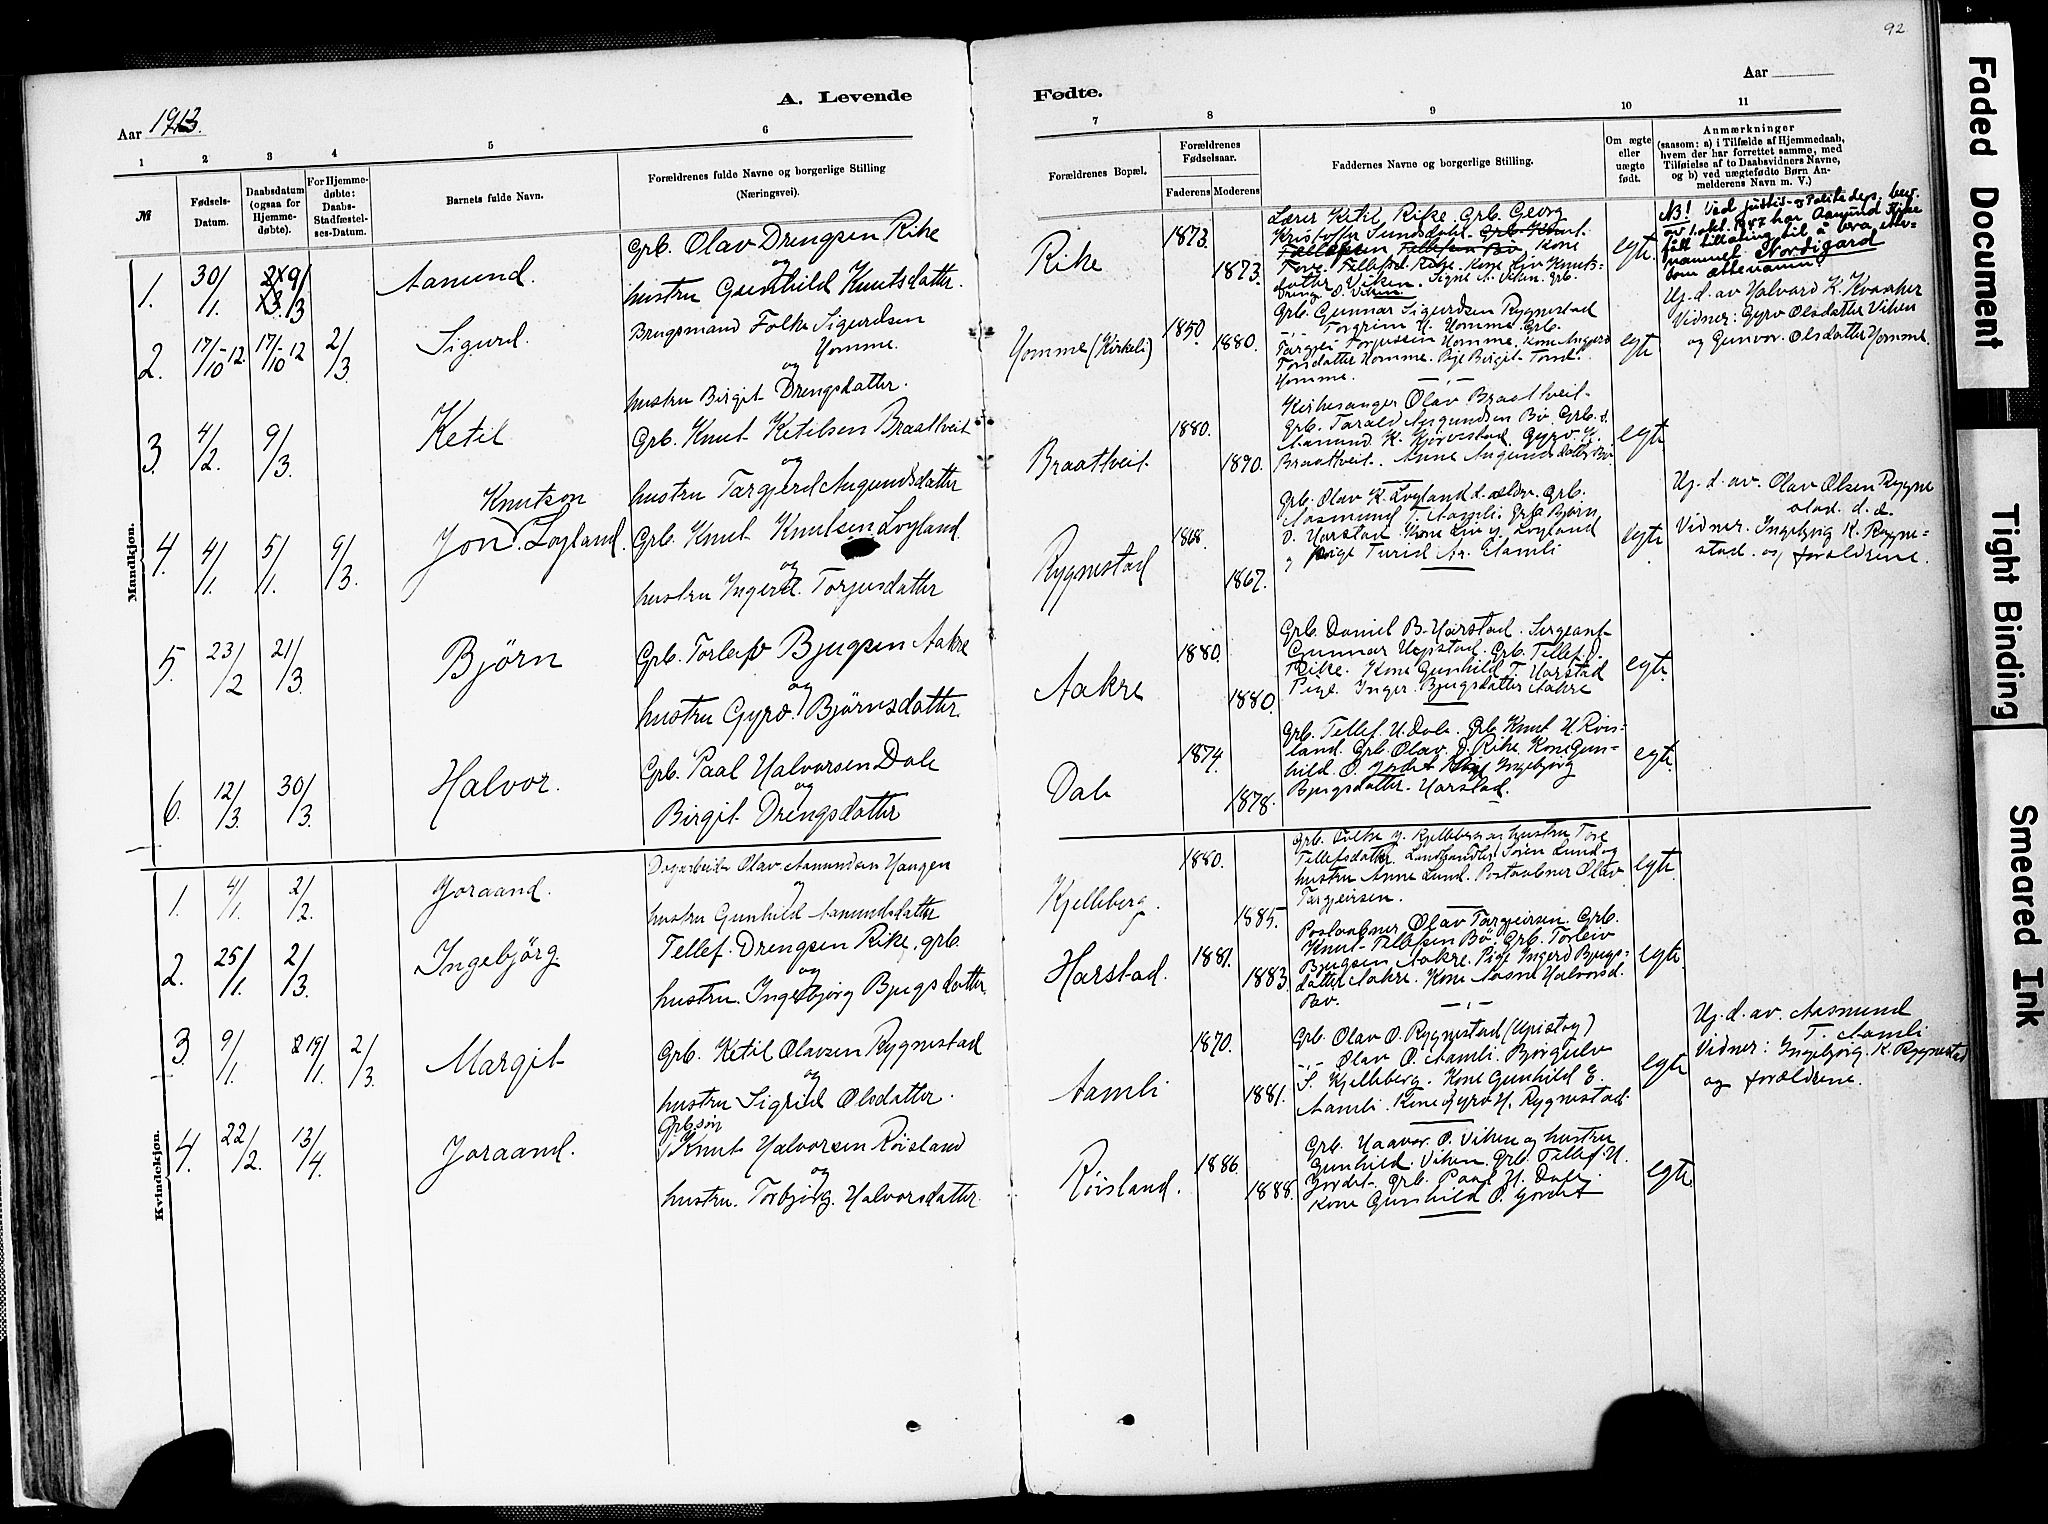 92
Aar 1913.
A. Levende
Fødte.
Aar
1 2 3 4 5 6
7 8 9 10 11
№
Fødsels-Datum.
Daabsdatum (ogsaa for Hjemme-døbte).
For Hjemme-døbte: Daabs-Stadfæstel-ses-Datum.
Barnets fulde Navn.
Forældrenes fulde Navne og borgerlige Stilling
(Næringsvei).
Forældrenes Bopæl.
Forældrenes Fødselsaar.
Faderens Moderens
Faddernes Navne og borgerlige Stilling.
Om ægte eller uægte født.
Anmærkninger
(saasom: a) i Tilfælde af Hjemmedaab,
hvem der har forrettet samme, med
Tilføielse af to Daabsvidners Navne,
og b) ved uægtefødte Børn An-
melderens Navn m. V.)
Mandkjøn.
1. 30/1. 9/3 Aamund.
Grb. Olav Drengsen Rike
og
hustru Gunhild Knutsdatter.
Rike 1873. 1873.
Lærer Ketil Rike. Grb. Georg
Kristoffer Sundsdal.
Kone
Tore Tellefsd. Rike. Kone Liv Knuts-
datter Viken. Signe A. Viken. Grb.
Dreng O. Viken.
egt.
NB! Ved Justis- og Politidep. bev.
av 1. okt. 1947 har Aamund Rike
fått tillating til å bra etter-
namnet Nordigard
som ættenamn.
2. 17/10-12. 17/10 12 2/3. Sigurd.
Brugsmand Folke Sigurdsen
Homme.
og
hustru Birgit Drengsdatter.
Homme (Kirkeli) 1850. 1880.
Grb. Gunnar Sigurdsen Rygnestad
-,,- Torgrim H. Homme. Grb.
Targjei Torjussen Homme. Kone Angjerd
Torsdatter Homme. Pige Birgit Torsd.
Homme.
egte
Hj. d. av Halvard K. Kvaaher
Vidner: Gyro Olsdatter Viken
og Gunvor Olsdatter Homme.
3. 4/2. 9/3. Ketil
Grb. Knut Ketilsen Braatveit
og
hustru Targjerd Augundsdatter
Braatveit. 1880. 1890.
Kirkesanger Olav Braatveit.
Grb. Tarald Augundsen Bø. Grb.s.
Aamund K. Gyro G.
Braatveit. Anne Augundsdatter Bø.
egte
4. 4/1. 5/1. 9/3. Jon Knutson Loyland.
Grb. Knut Knutsen Loyland.
og
hustru Ingerd Torjusdatter
Rygnestad 1868. 1867.
Grb. Olav K. Loyland d. ældre. Grb.
Aasmund T. Aamli. Grb Bjørn
O. Harstad. Kone Liv G. Loyland
, pige Turid Aamli
egte
Hj. d. av. Olav Olsen Rygne
stad. d. æ.
Vidner. Ingebjørg K. Rygne-
stad. og forældrene.
5. 23/2 21/3. Björn
Grb. Torleiv Bjugsen Aakre
og
hustru Gyro Björnsdatter.
Aakre 1880. 1880.
Grb. Daniel B. Harstad. Sergeant
Gunnar Uppstad. Grb. Tellef D.
Rike. Kone Gunhild T. Harstad
Pige. Inger Bjugsdatter Aakre
egte.
6. 12/3. 30/3. Halvor.
Grb. Paal Halvorsen Dale
og
Birgit Drengsdatter
Dale 1874. 1878.
Grb. Tellef H. Dale. Grb. Knut H. Røis-
land. Grb. Olav D. Rike. Kone Gun-
hild O. Jordet Pige Ingebjørg
Bjugsdatter Harstad.
egte.
Kvindekjøn.
1. 4/1. 2/2. Joraand.
Dagarbeider Olav Aamundsen Haugen
og
hustru Gunhild Aamundsdatter
Kjelleberg. 1880. 1885.
Grb. Folke G. Kjelleberg og hustru Tore
Tellefsdatter. Landhandler Søren Lund og
hustru Anne Lund. Postaabner Olav
Targjeirsen.
egte.
2. 25/1. 2/3. Ingebjörg
Tellef Drengsen Rike, grb.
og
hustru. Ingebjørg Bjugsdatter.
Harstad. 1881. 1883.
Postaabner Olav Targjeirsen. Grb.
Knut Tellefsen Bø. Grb. Torleiv
Bjugsen Aakre. Pige Ingerd Bjugs-
datter Aakre. Kone Aasne Halvorsd.
egte.
3. 9/1. 19/1. 2/3. Margit
Grb. Ketil Olavsen Rygnestad
og
hustru Sigrid Olsdatter.
Aamli 1870. 1881.
Grb. Olav O. Rygnestad (Upistog)
-,,- Olav O. Aamli. Bjørgulv
S. Kjelleberg. Kone Gunhild E.
Aamli. Kone Gyro H. Rygnestad.
egte
Hj. d. av. Aasmund
T. Aamli
Vidner: Ingebjørg K. Rygnestad
og forældrene.
4. 22/2. 13/4. Joraand.
Grb.søn
Knut Halvorsen Røisland
og
hustru. Torbjørg Halvorsdatter.
Røisland. 1886 1888.
Grb. Haavor O. Viken og hustru
Gunhild Viken. Grb. Tellef H.
Jordet. Grb. Paal H. Dale
Kone Gunhild O. Jordet
egte
Faded Document
Tight Binding
Smeared Ink